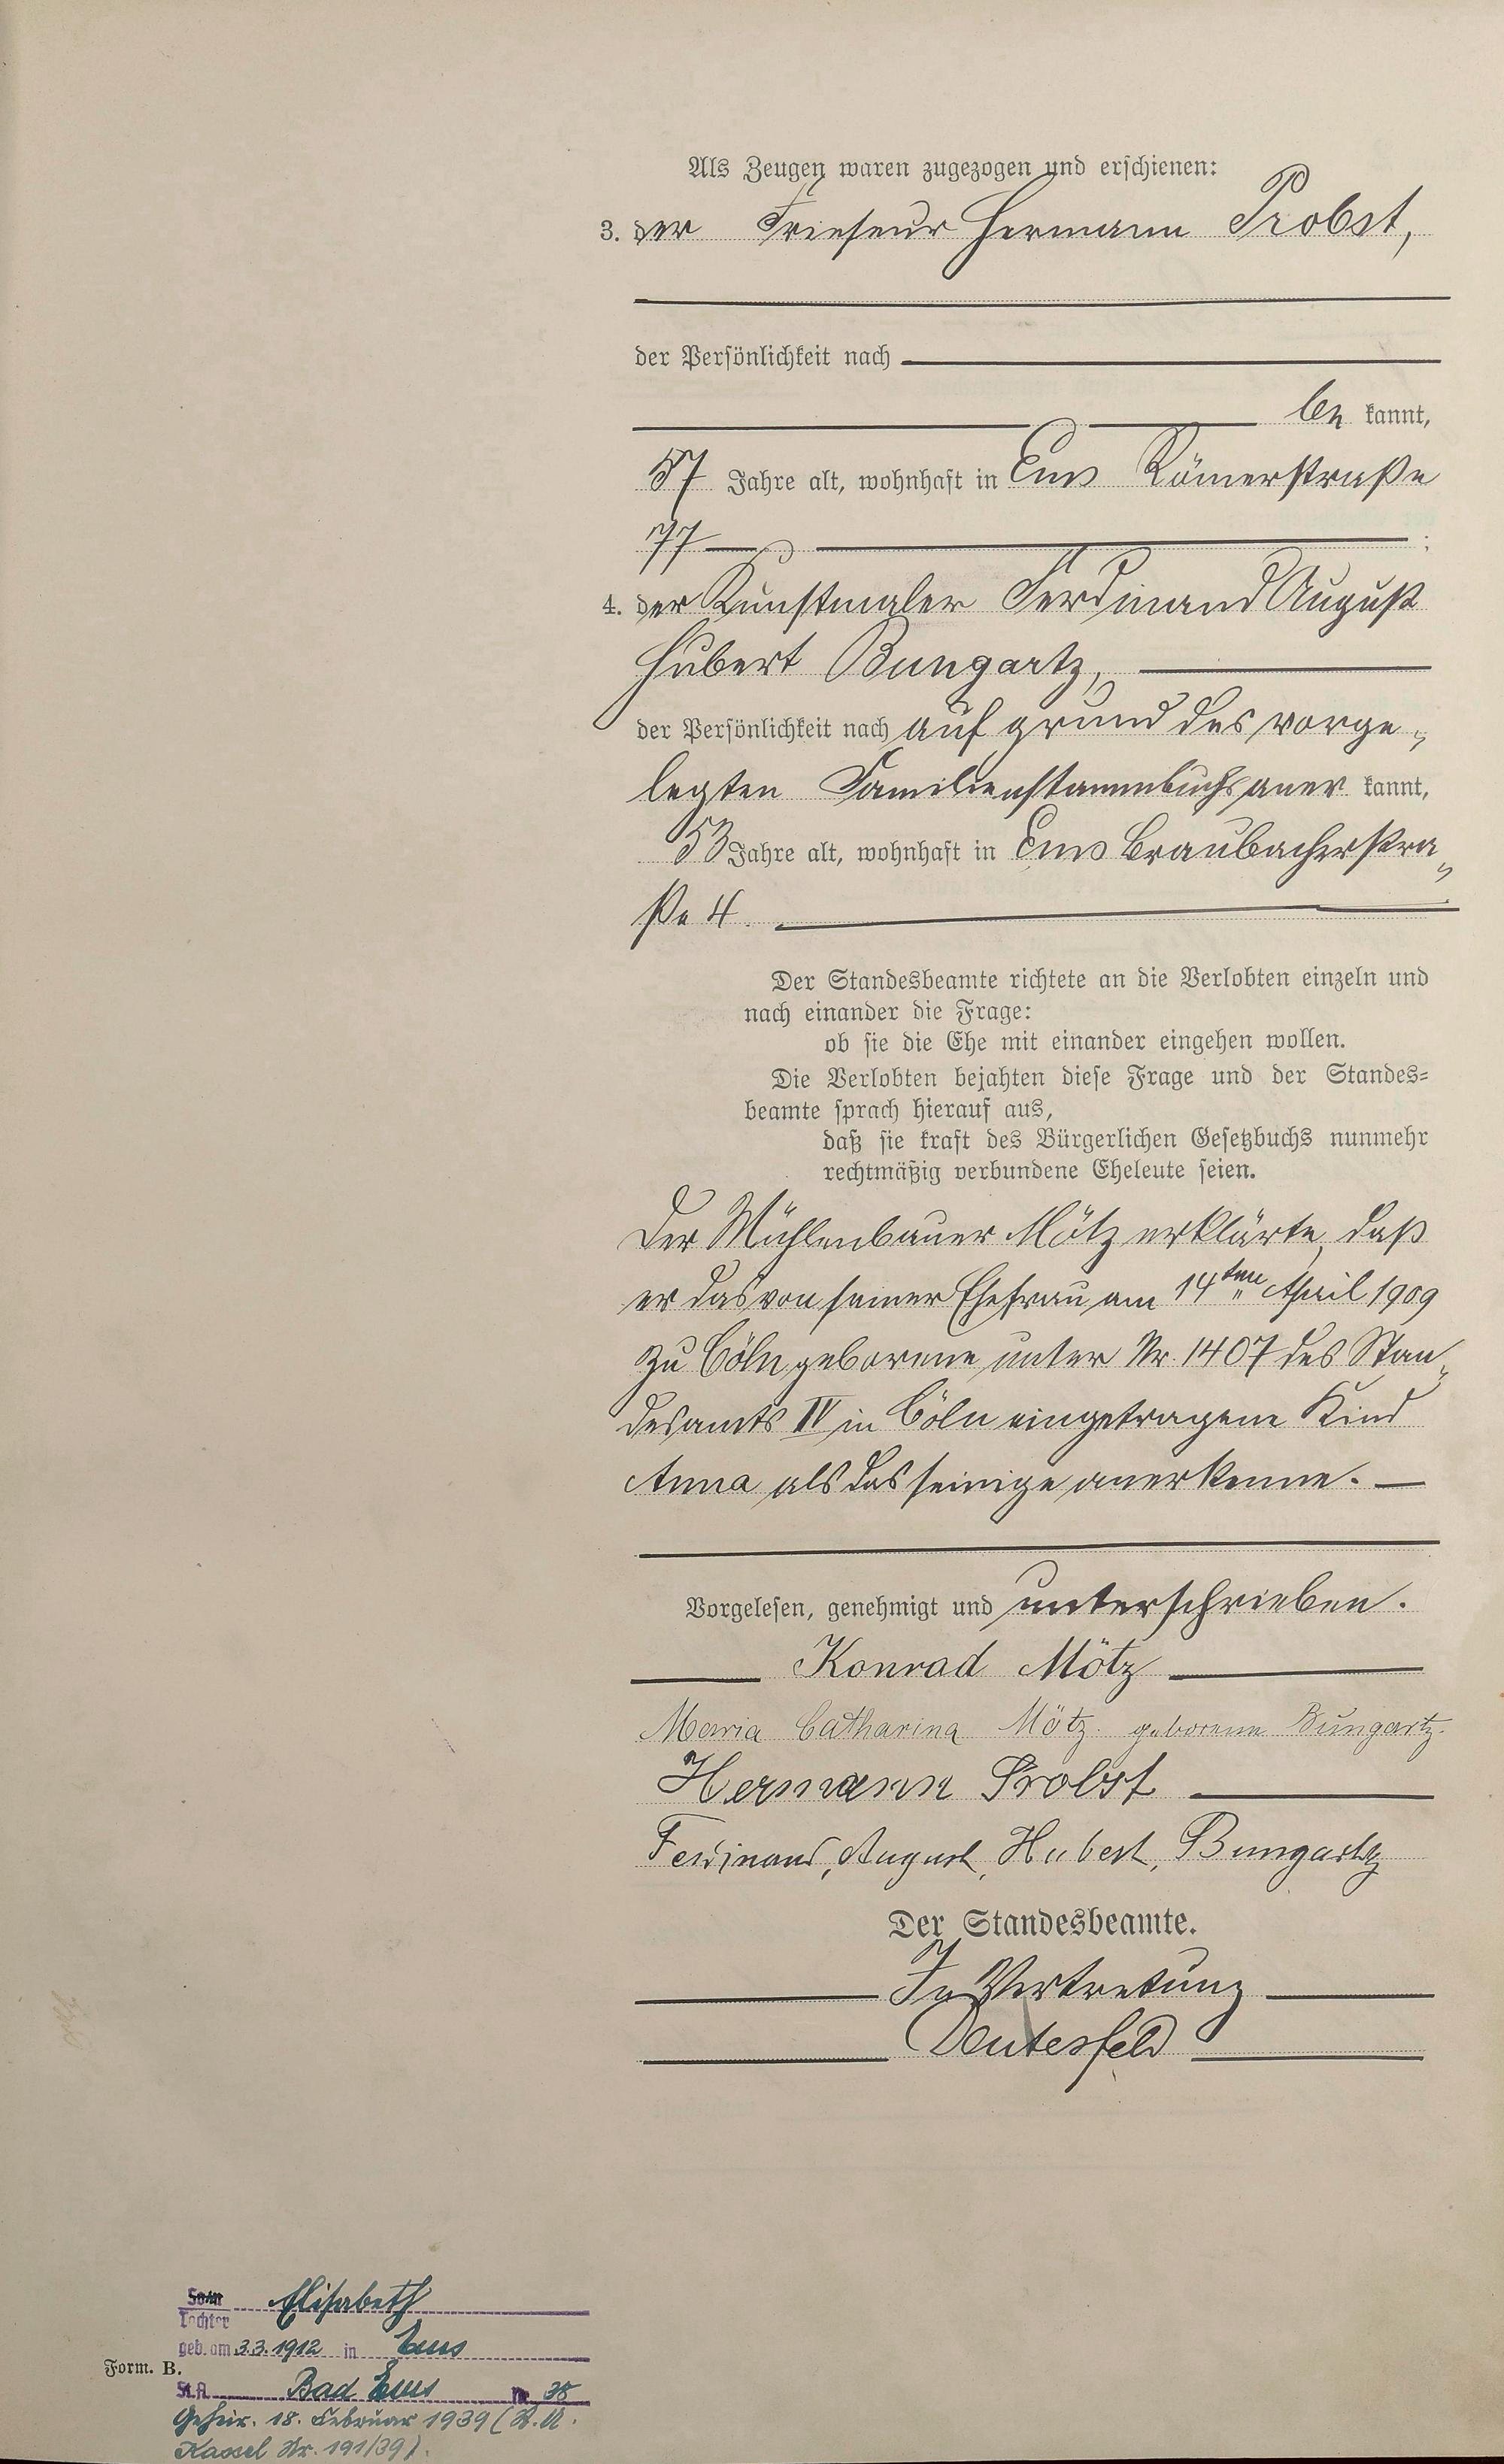 Als Zeugen waren zugezogen und erschienen:
3. der Friseur Hermann Probst,
der Persönlichkeit nach
be kannt,
57 Jahre alt, wohnhaft in Ems Römerstraße
77 ;
4. der Kunstmaler Ferdinand August
Hubert Bungartz,
der Persönlichkeit nach auf grund des vorge„
legten Familienstammbuchs aner kannt,
53 Jahre alt, wohnhaft in Ems Braubacherstra„
ße 4.
Der Standesbeamte richtete an die Verlobten einzeln und
nach einander die Frage:
ob sie die Ehe mit einander eingehen wollen.
Die Verlobten bejahten diese Frage und der Standes=
beamte sprach hierauf aus,
daß sie kraft des Bürgerlichen Gesetzbuchs nunmehr
rechtmäßig verbundene Eheleute seien.
Der Mühlenbauer Mötz erklärte, daß
er das von seiner Ehefrau am 14ten April 1909
zu Cöln geborene unter Nr. 1407 des Stan„
desamts IV in Cöln eingetragene Kind
Anna als das seinige anerkenne.
Vorgelesen, genehmigt und unterschrieben.
Konrad Mötz
Maria Catharina Mötz. geborene Bungartz.
Hermann Probst
Ferdinand, August, Hubert, Bungartz
Der Standesbeamte.
In Vertretung
Deutesfeld
Sohn Elisabeth
Tochter
geb. am 3.3.1912 in Ems
Form. B.
St.A. Bad Ems Nr. 38
Geheir. 18. Februar 1939 (St.A.
Kassel Nr. 191/39).